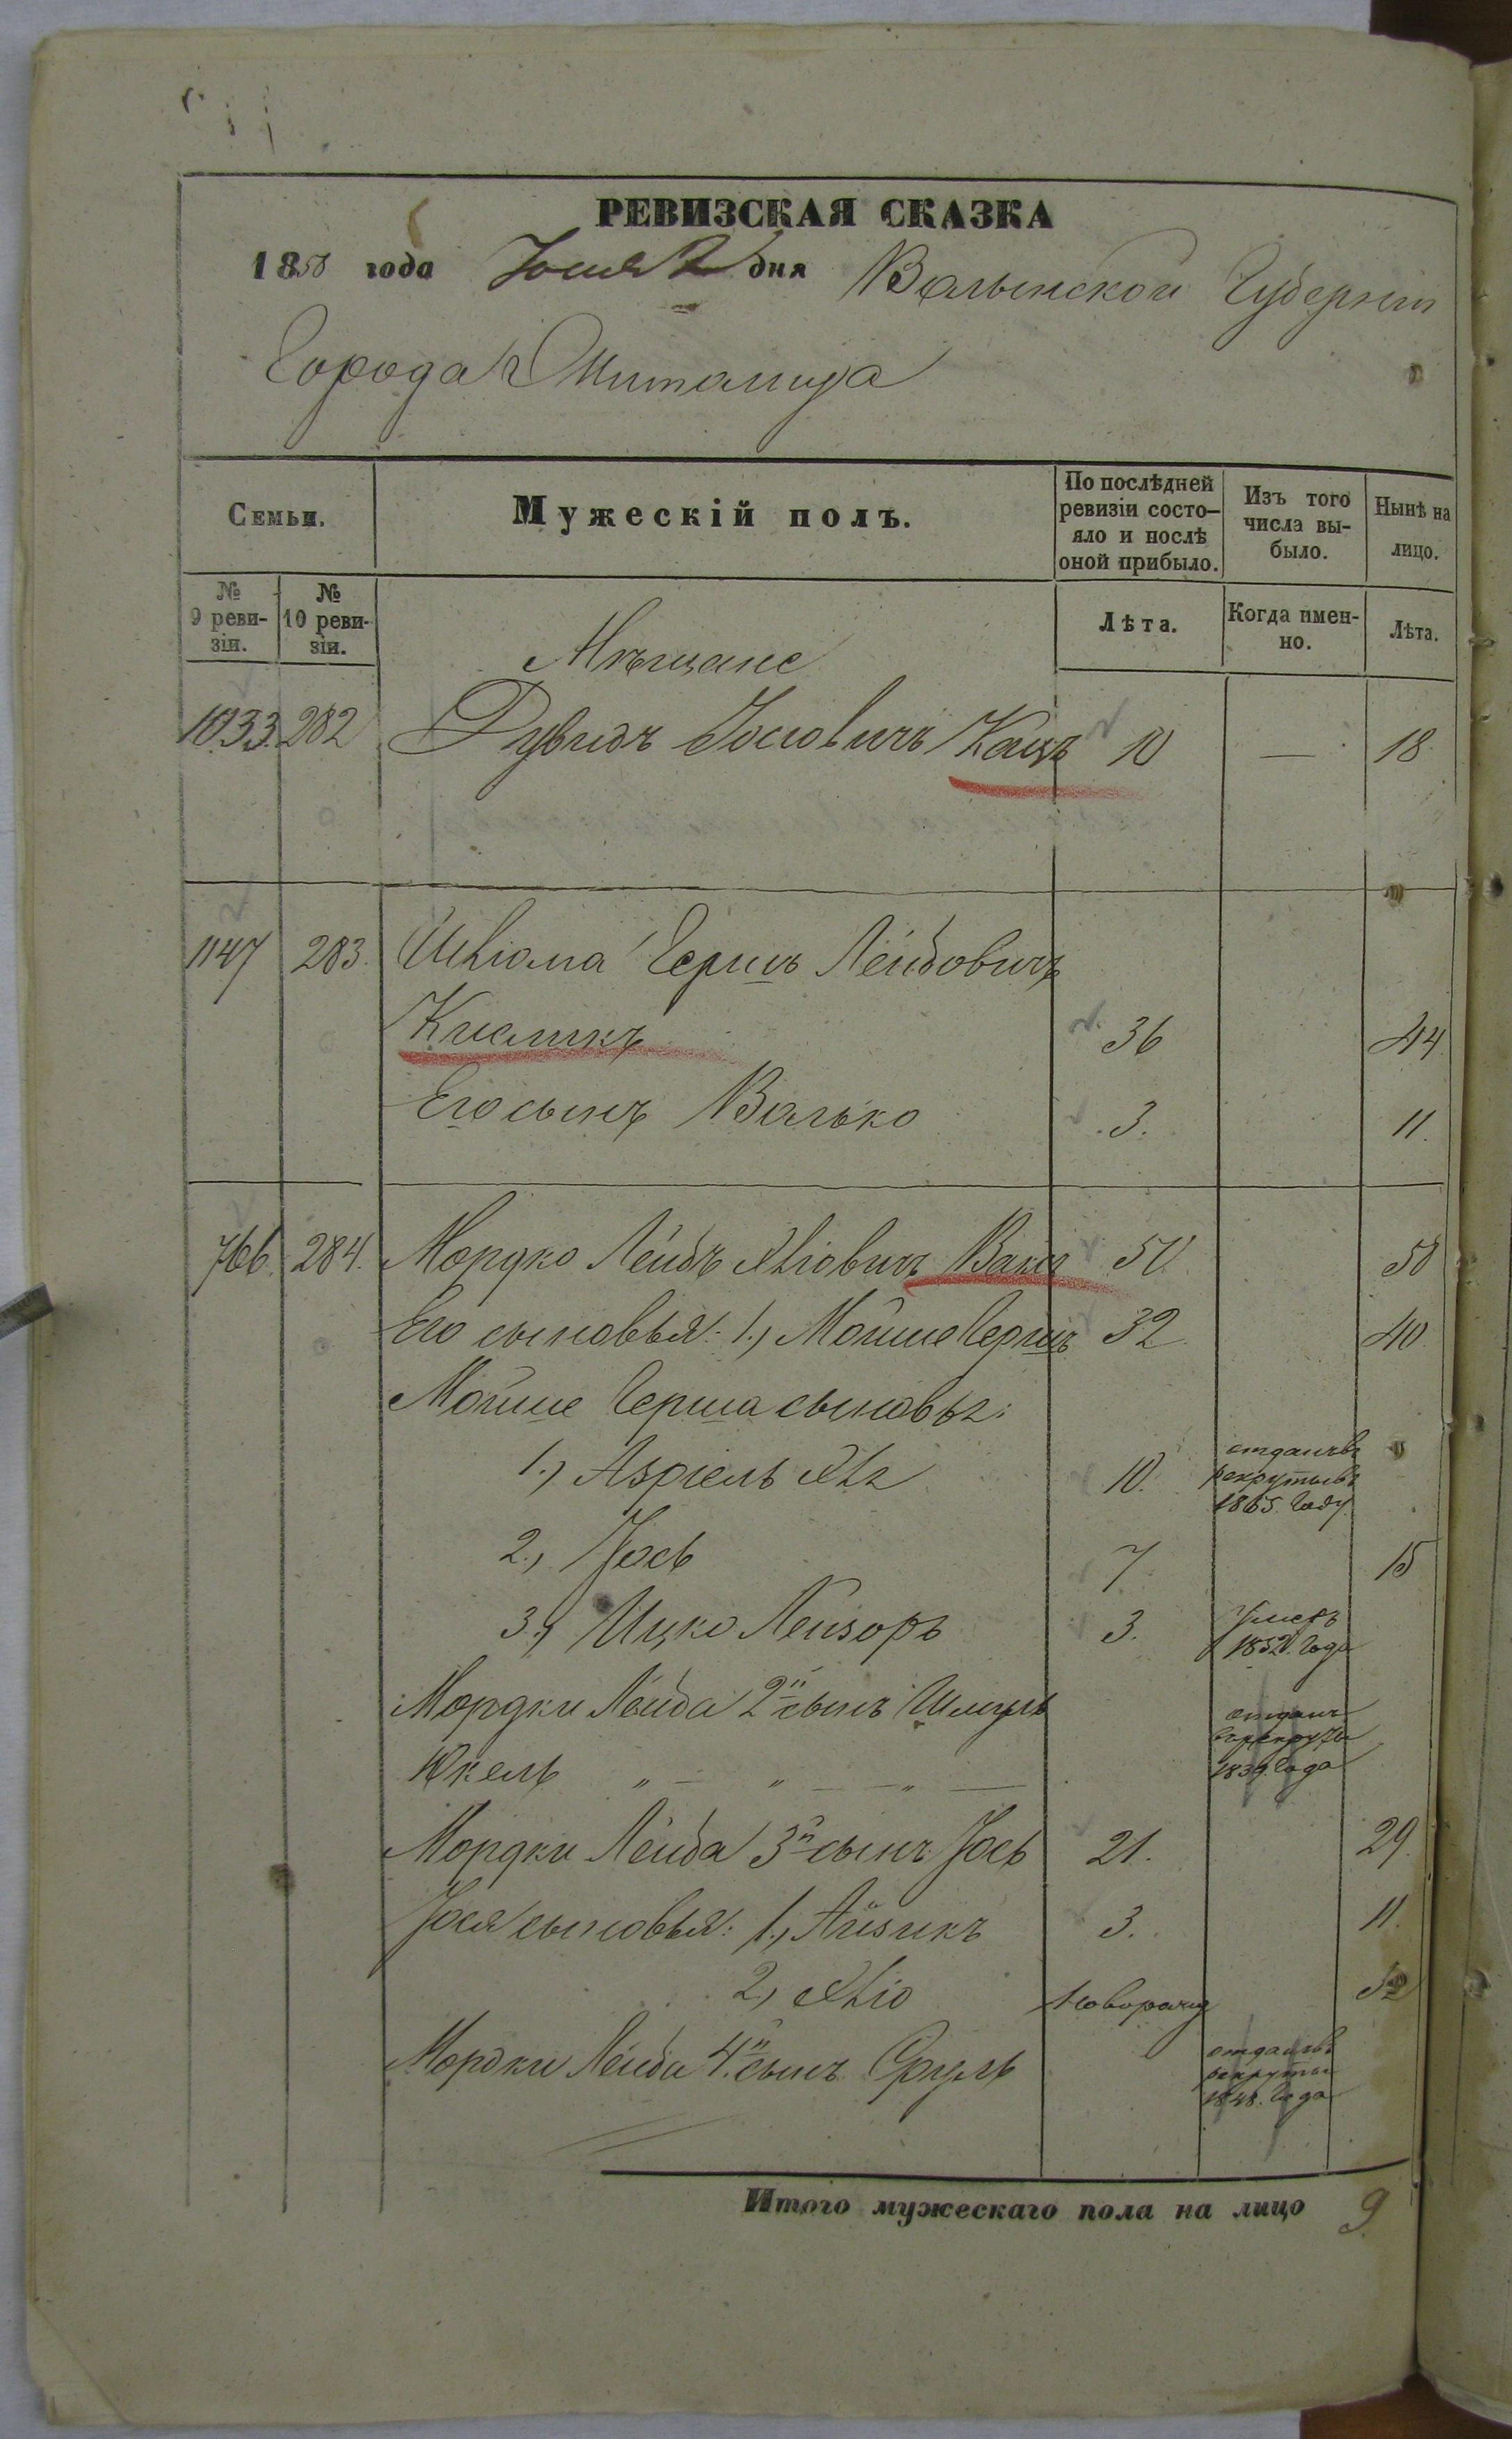 РЕВИЗСКАЯ СКАЗКА
1858 года Юня 2 дня Волынской Губерніи
Города Житомира
Семьи.
Мужескій полъ.
По послѣдней ревизіи состо-яло и послѣ оной прибыло.
Изъ того числа вы-было.
Нынѣ на лицо.
№ 9 реви-зіи.
№ 10 реви-зіи.
Лѣта.
Когда имен-но.
Лѣта.
Мѣщане
1033. 282 Дувидъ Іосіовичъ Кацъ 10 — 18
1147 283. Шліома Гершъ Лейбовичъ
Кисликъ 36 44
Его сынъ Волько 3. 11.
766. 284. Мордко Лейбъ Абіовичъ Вакса 50 58
Его сыновья: 1.) Мойше Гершъ 32 40
Мойше Герша сыновья:
1.) Азріель Аба 10. отданъ въ рекруты въ 1855. Году.
2.) Іось 7 15
3.) Ицко Лейзоръ 3. Умеръ 1852. Года
Мордки Лейба 2й сынъ Шмуль
Юкель „ — „ — — „ — отданъ въ рекруты 1839. Года
Мордки Лейба 3й сынъ Іось 21. 29.
Іося сыновья: 1.) Айзикъ 3. 11.
2.) Абіо Новорожд
Мордки Лейба 4й сынъ Сруль отданъ въ рекруты 1848. Года
Итого мужескаго пола на лицо 9.